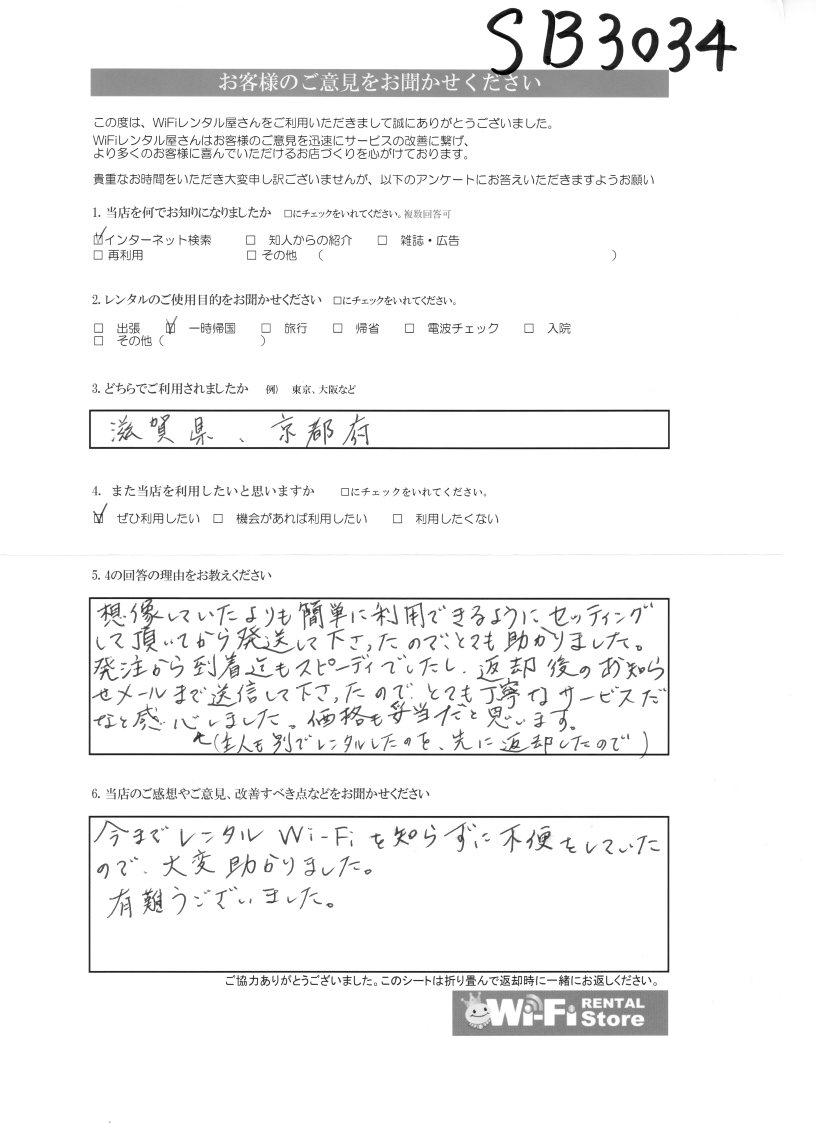 SB3034
お客様のご意見をお聞かせください
この度は、WiFiレンタル屋さんをご利用いただきまして誠にありがとうございました。
WiFiレンタル屋さんはお客様のご意見を迅速にサービスの改善に繋げ、
より多くのお客様に喜んでいただけるお店づくりを心がけております。
貴重なお時間をいただき大変申し訳ございませんが、以下のアンケートにお答えいただきますようお願い
1. 当店を何でお知りになりましたか　□にチェックをいれてください。複数回答可
☑インターネット検索　□ 知人からの紹介　□ 雑誌・広告
□ 再利用　□ その他　（　）
2. レンタルのご使用目的をお聞かせください　□にチェックをいれてください。
□ 出張　☑ 一時帰国　□ 旅行　□ 帰省　□ 電波チェック　□ 入院
□ その他（　）
3. どちらでご利用されましたか　例） 東京、大阪など
滋賀県、京都府
4. また当店を利用したいと思いますか　□にチェックをいれてください。
☑ ぜひ利用したい　□ 機会があれば利用したい　□ 利用したくない
5. 4の回答の理由をお教えください
想像していたよりも簡単に利用できるように、セッティング
して頂いてから発送して下さったので、とても助かりました。
発注から到着迄もスピーディでしたし、返却後のお知ら
せメールまで送信して下さったので、とても丁寧なサービスだ
なと感心しました。価格も妥当だと思います。
(主人も別でレンタルしたのを、先に返却したので)
6. 当店のご感想やご意見、改善すべき点などをお聞かせください
今までレンタルWi-Fiを知らずに不便をしていた
ので、大変助かりました。
有難うございました。
ご協力ありがとうございました。このシートは折り畳んで返却時に一緒にお返しください。
Wi-Fi RENTAL Store